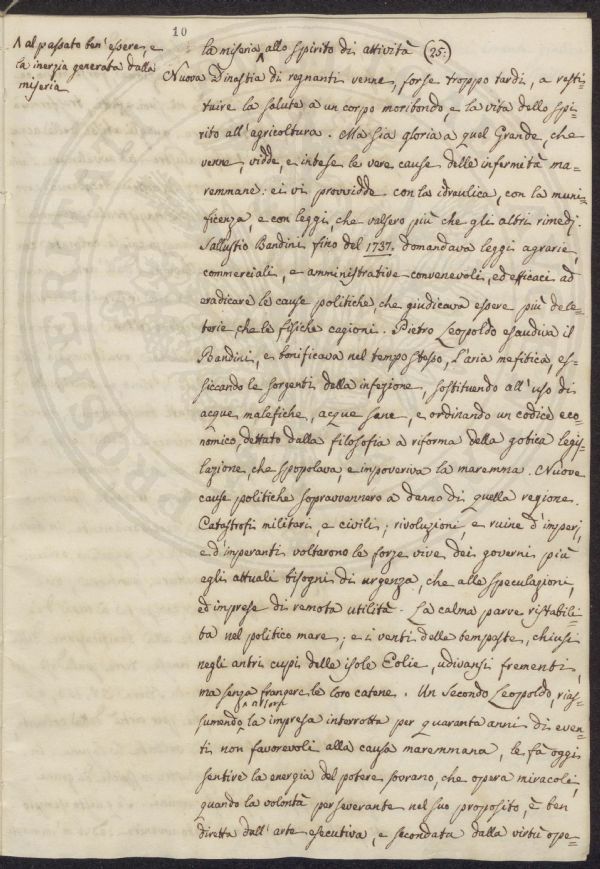 10
Λ al passato ben'essere, e
la inerzia generata dalla
miseria
la miseria Λ allo spirito di attività (25:)
Nuova Dinastia di regnanti venne, forse troppo tardi, a resti=
tuire la salute a un corpo moribondo, e la vita dello spi=
rito all'agricoltura. Ma sia gloria a quel Grande, che
venne, vidde, e intese le vere cause delle infermità ma=
remmane: ei vi provvidde con la idraulica, con la muni=
ficenza, e con leggi, che valsero più che gli altri rimedj.
Sallustio Bandini fino del 1737. domandava leggi agrarie,
commerciali, e amministrative convenevoli, ed efficaci ad
eradicare le cause politiche, che giudicava essere più dele=
terie che le fisiche cagioni. Pietro Leopoldo esaudiva il
Bandini, e bonificava nel tempo stesso, l'aria mefitica, es=
siccando le sorgenti della infezione, sostituendo all'uso di
acque malefiche, acque sane, e ordinando un codice eco=
nomico, dettato dalla filosofia a riforma della gotica legis=
lazione, che spopolava, e impoveriva la maremma. Nuove
cause politiche sopravvennero a danno di quella regione.
Catastrofi militari, e civili; rivoluzioni, e ruine d'imperj,
e d'imperanti voltarono le forze vive dei governi più
agli attuali bisogni di urgenza, che alle speculazioni,
ed imprese di remota utilità. La calma parve ristabili=
ta nel politico mare; e i venti delle tempeste, chiusi
negli antri cupi delle isole Eolie, udivansi frementi,
ma senza frangere le loro catene. Un Secondo Leopoldo, rias=
sumendo Λ la impresa interrotta per quaranta anni di even=
ti non favorevoli alla causa maremmana, le fà oggi
sentire la energia del potere sovrano, che opera miracoli,
quando la volontà perseverante nel suo proposito, è ben
diretta dall'arte esecutiva, e secondata dalla virtù ope=